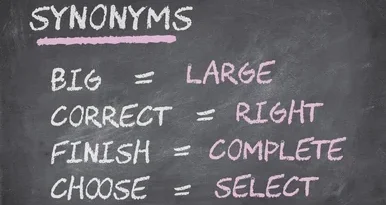 SYNONYMS
BIG = LARGE
CORRECT = RIGHT
FINISH = COMPLETE
CHOOSE = SELECT